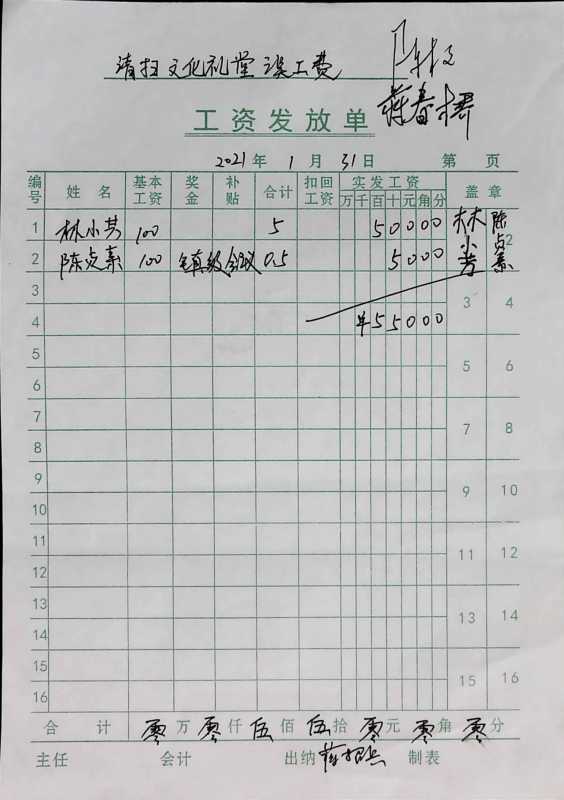 清扫文化礼堂误工费
蒋春
工资发放单
2021年 1月 31日 第 页
编号 姓名 基本工资 奖金 补贴 合计 扣回工资 实发工资 盖章
万 千 百 十 元 角 分
1 林小芳 100 5 50000 林小芳 陈贞素
2 陈贞素 100 镇级会议 0.5 5000 2
3 3 4
4 ¥55000
5 5 6
6
7 7 8
8
9 9 10
10
11 11 12
12
13 13 14
14
15 15 16
16
合计 零万零仟伍佰伍拾零元零角零分
主任 会计 出纳 制表